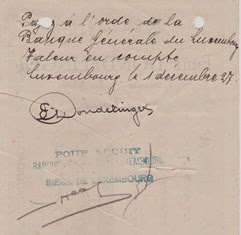 Payez à l'ordre de la
Banque Générale du Luxembourg
Valeur en compte
Luxembourg, le 1 décembre 27.
POUR ACQUIT
BANQUE GÉNÉRALE DU LUXEMBOURG
SIÈGE DE LUXEMBOURG